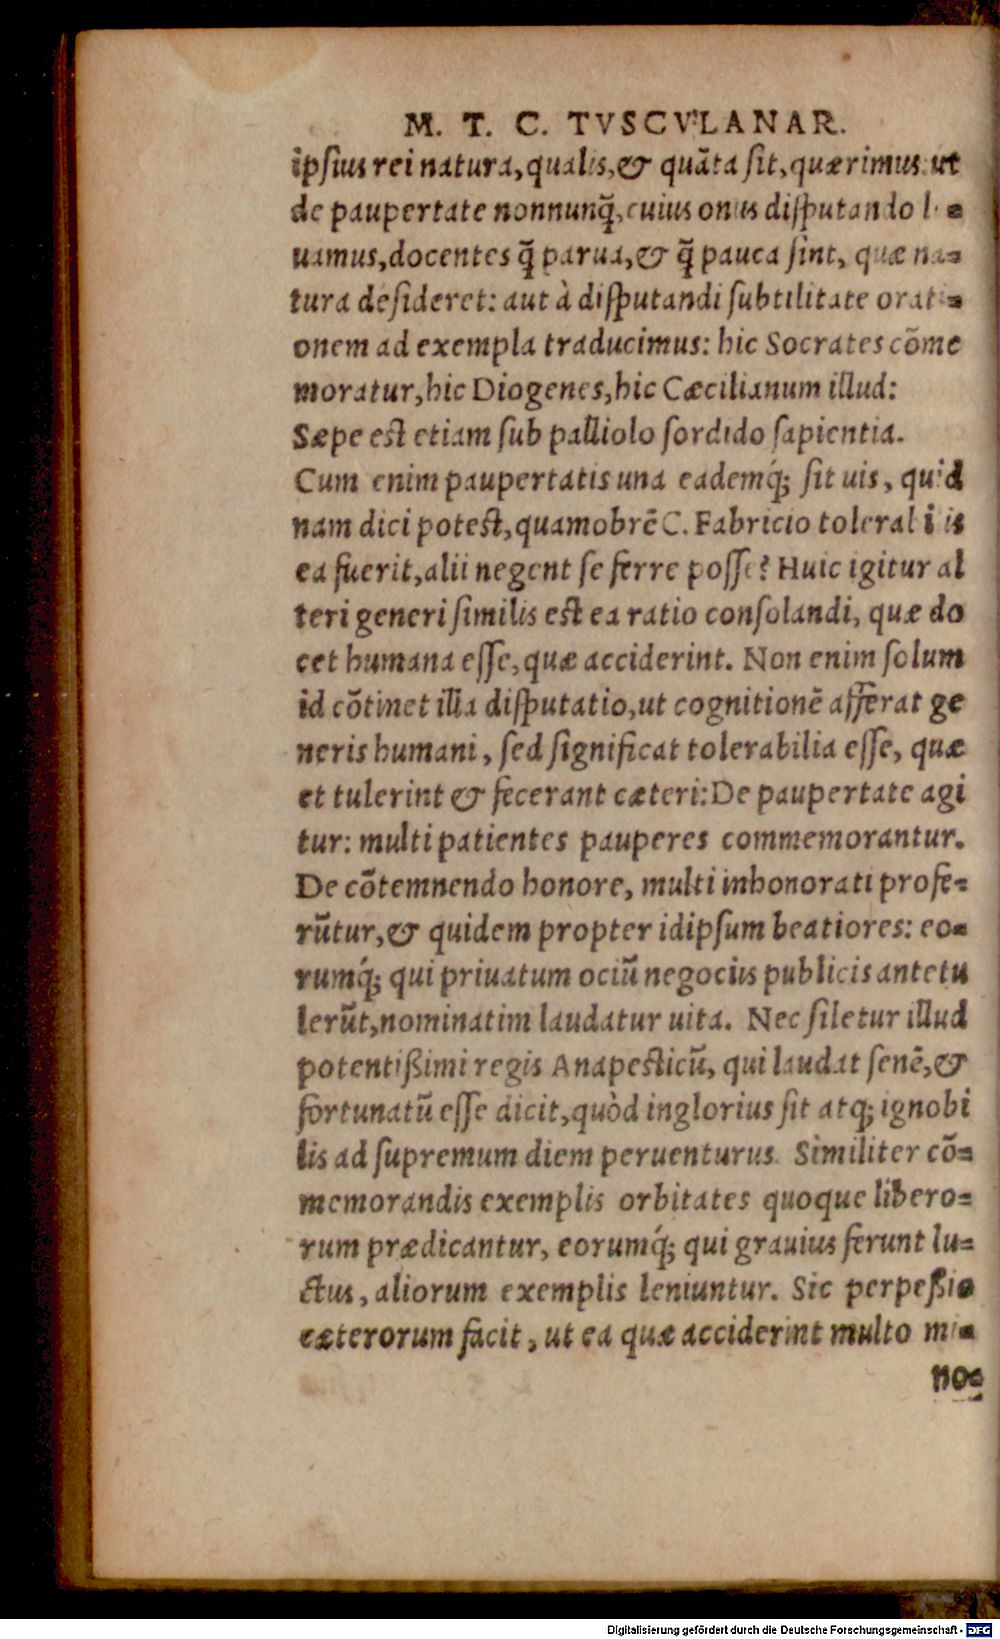 M. T. C. TVSCVLANAR.
ipsius rei natura, qualis, & quãta sit, quærimus: ut
de paupertate nonnunq̃, cuius onus disputando le=
uamus, docentes q̃ parua, & q̃ pauca sint, quæ na=
tura desideret: aut à disputandi subtilitate orati=
onem ad exempla traducimus: hic Socrates cõme
moratur, hic Diogenes, hic Cæcilianum illud:
Sæpe est etiam sub palliolo sordido sapientia.
Cum enim paupertatis una eademq́; sit uis, quid
nam dici potest, quamobrẽ C. Fabricio tolerabilis
ea fuerit, alii negent se ferre posse? Huic igitur al
teri generi similis est ea ratio consolandi, quæ do
cet humana esse, quæ acciderint. Non enim solum
id cõtinet illa disputatio, ut cognitionẽ afferat ge
neris humani, sed significat tolerabilia esse, quæ
et tulerint & fecerant cæteri: De paupertate agi
tur: multi patientes pauperes commemorantur.
De cõtemnendo honore, multi inhonorati profe=
rũtur, & quidem propter idipsum beatiores: eo=
rumq́; qui priuatum ociũ negociis publicis antetu
lerũt, nominatim laudatur uita. Nec siletur illud
potentißimi regis Anapesticũ, qui laudat senẽ, &
fortunatũ esse dicit, quòd inglorius sit atq; ignobi
lis ad supremum diem peruenturus. Similiter cõ=
memorandis exemplis orbitates quoque libero=
rum prædicantur, eorumq́; qui grauius ferunt lu=
ctus, aliorum exemplis leniuntur. Sic perpeßio
cæterorum facit, ut ea quæ acciderint multo mi=
no=
Digitalisierung gefördert durch die Deutsche Forschungsgemeinschaft - DFG